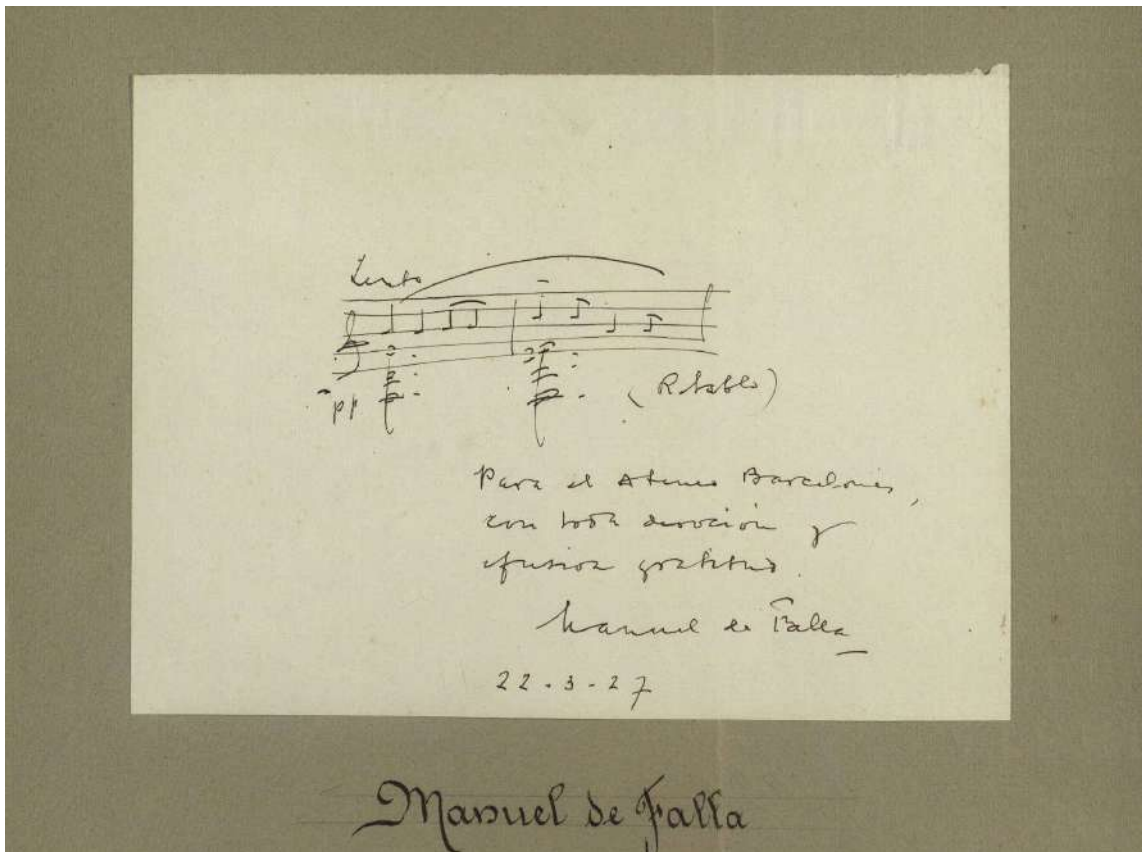 Lento
pp
(Retablo)
Para el Ateneo Barcelonés,
con toda devoción y
efusiva gratitud.
Manuel de Falla
22-3-27
Manuel de Falla